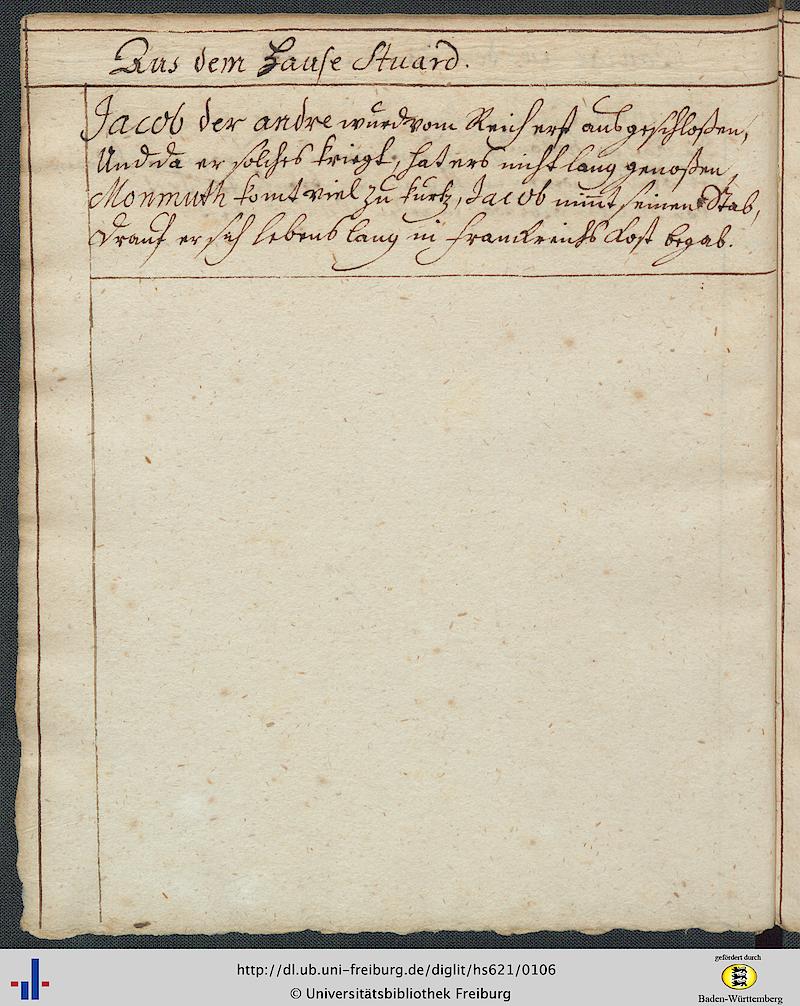 Aus dem Hause Stuard.
Jacob der andre wurd vom Reich erst ausgeschloßen,
Und da er solches kriegt, hat ers nicht lang genoßen,
Monmuth komt viel zu kurtz, Jacob nim̅t seinen Stab,
Drauf er sich lebens lang in Franckreichs Kost begab.
http://dl.ub.uni-freiburg.de/diglit/hs621/0106
© Universitätsbibliothek Freiburg
gefördert durch
Baden-Württemberg